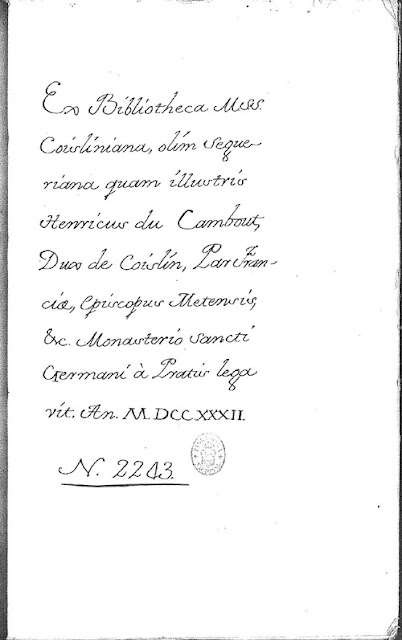 Ex Bibliotheca Mss.
Coisliniana, olim Segue-
riana quam illustris
Henricus du Cambout,
Dux de Coislin, Par Fran-
ciæ, Episcopus Metensis,
&c. Monasterio sancti
Germani à Pratis lega
vit. An. M. DCC XXXII.
N. 2243.